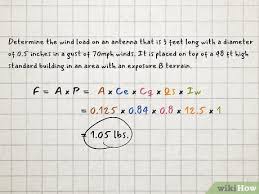 Determine the wind load on an antenna that is 3 feet long with a diameter
of 0.5 inches in a gust of 70mph winds. It is placed on top of a 98 ft high
standard building in an area with an exposure B terrain.
F = A x P = A x Ce x Cq x Qs x Iw
= 0.125 x 0.84 x 0.8 x 12.5 x 1
= 1.05 lbs.
wikiHow